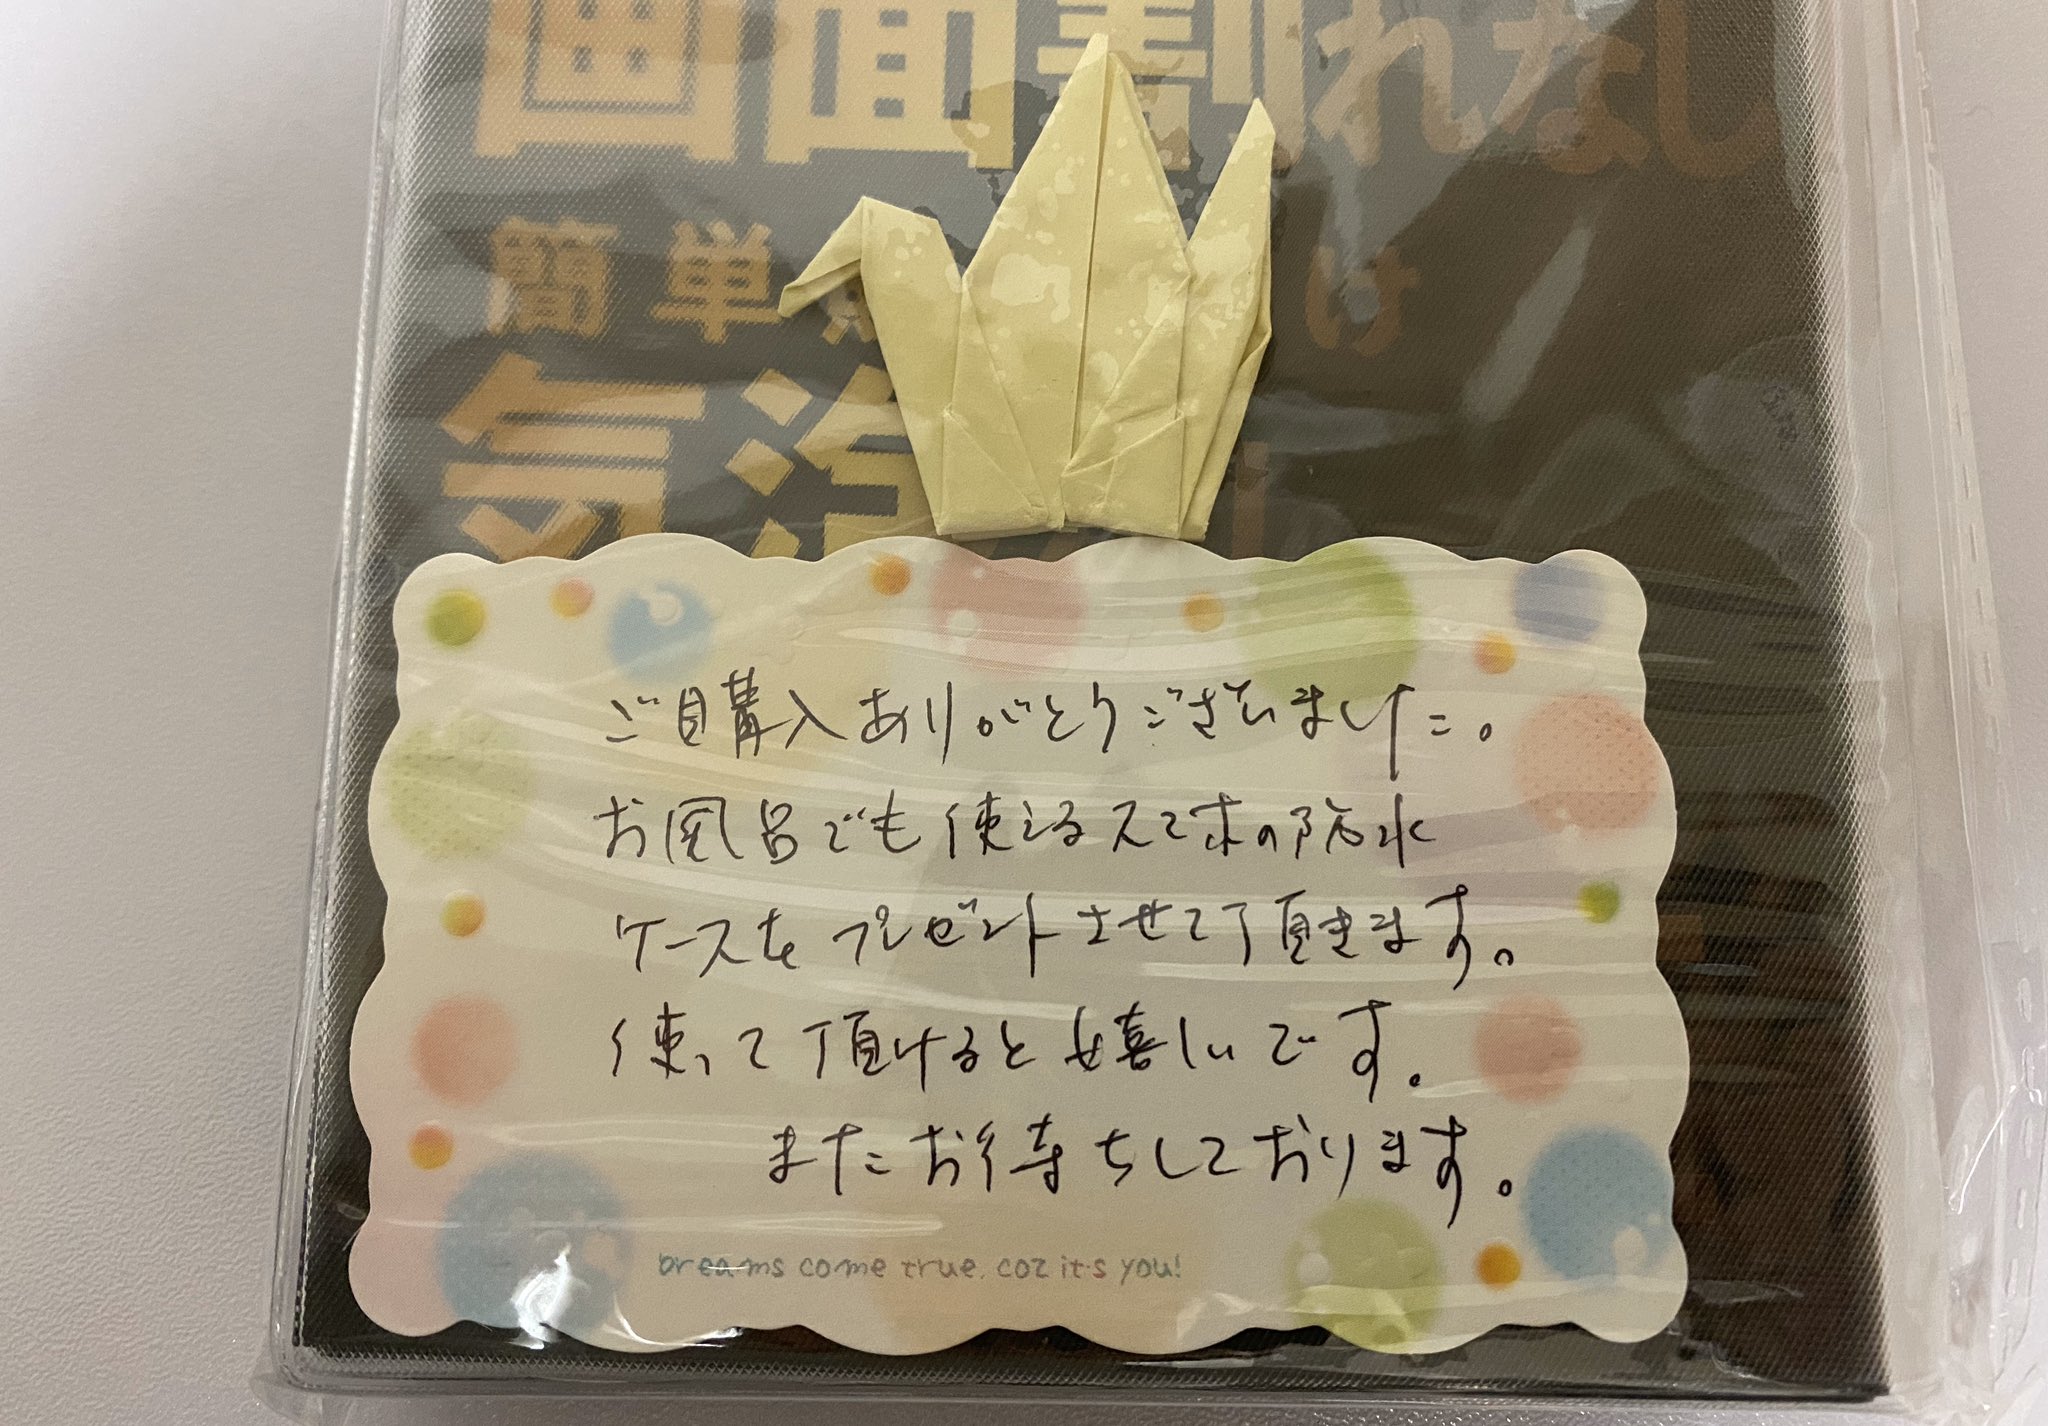 画面割れなし
簡単
は
気泡
ご購入ありがとうございました。
お風呂でも使えるスマホの防水
ケースをプレゼントさせて頂きます。
使って頂けると嬉しいです。
またお待ちしております。
dreams come true. coz it's you!